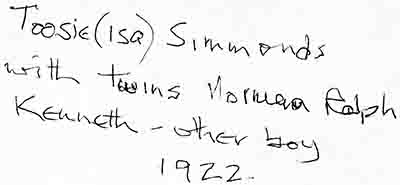 Toosie (Isa) Simmonds
with twins Norman Ralph
Kenneth - other boy
1922.